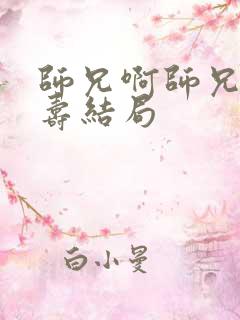 師兄啊師兄
壽結局
白小曼